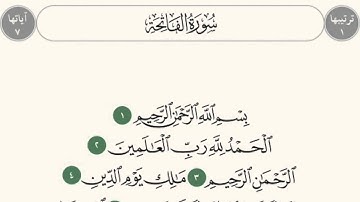 ترتيبها ١ سُورَةُ ٱلْفَاتِحَةِ آياتها ٧
بِسْمِ ٱللَّهِ ٱلرَّحْمَٰنِ ٱلرَّحِيمِ ١
ٱلْحَمْدُ لِلَّهِ رَبِّ ٱلْعَٰلَمِينَ ٢
ٱلرَّحْمَٰنِ ٱلرَّحِيمِ ٣ مَٰلِكِ يَوْمِ ٱلدِّينِ ٤